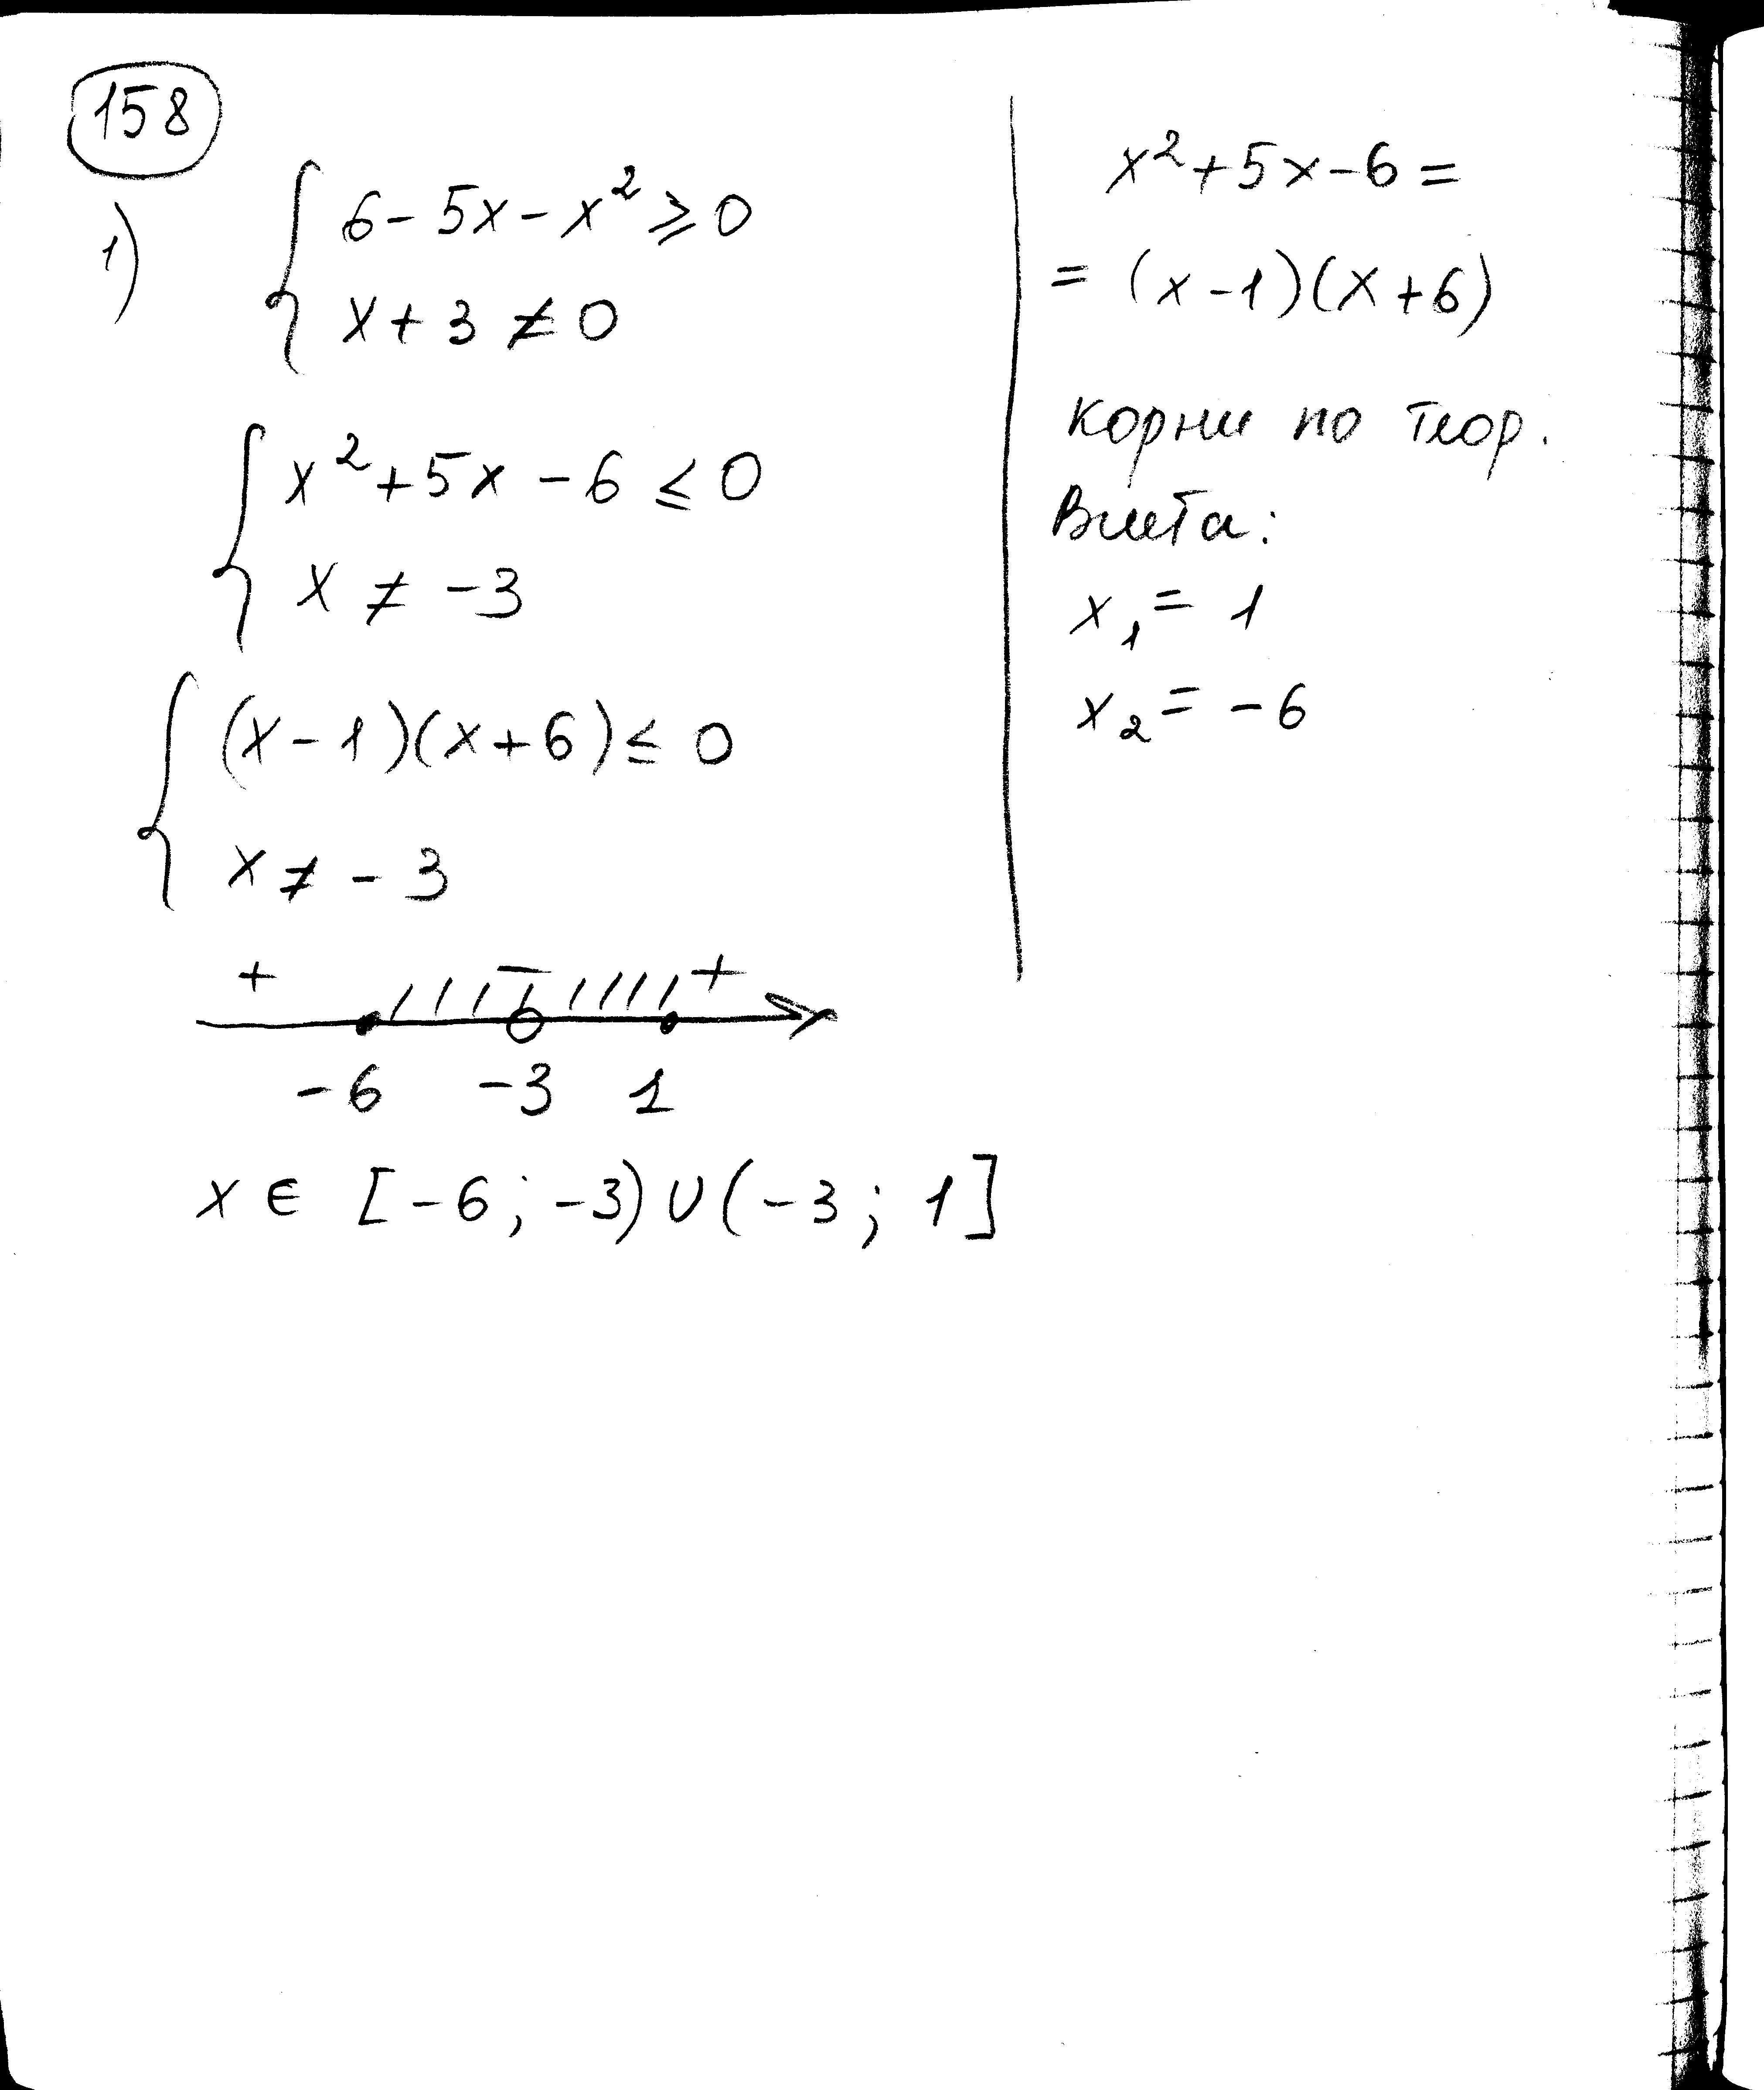 158
1)
6 - 5x - x² ≥ 0
x + 3 ≠ 0
x² + 5x - 6 ≤ 0
x ≠ -3
(x - 1)(x + 6) ≤ 0
x ≠ -3
+ - +
-6 -3 1
x ∈ [-6; -3) ∪ (-3; 1]
x² + 5x - 6 =
= (x - 1)(x + 6)
корни по теор.
Виета:
x₁ = 1
x₂ = -6